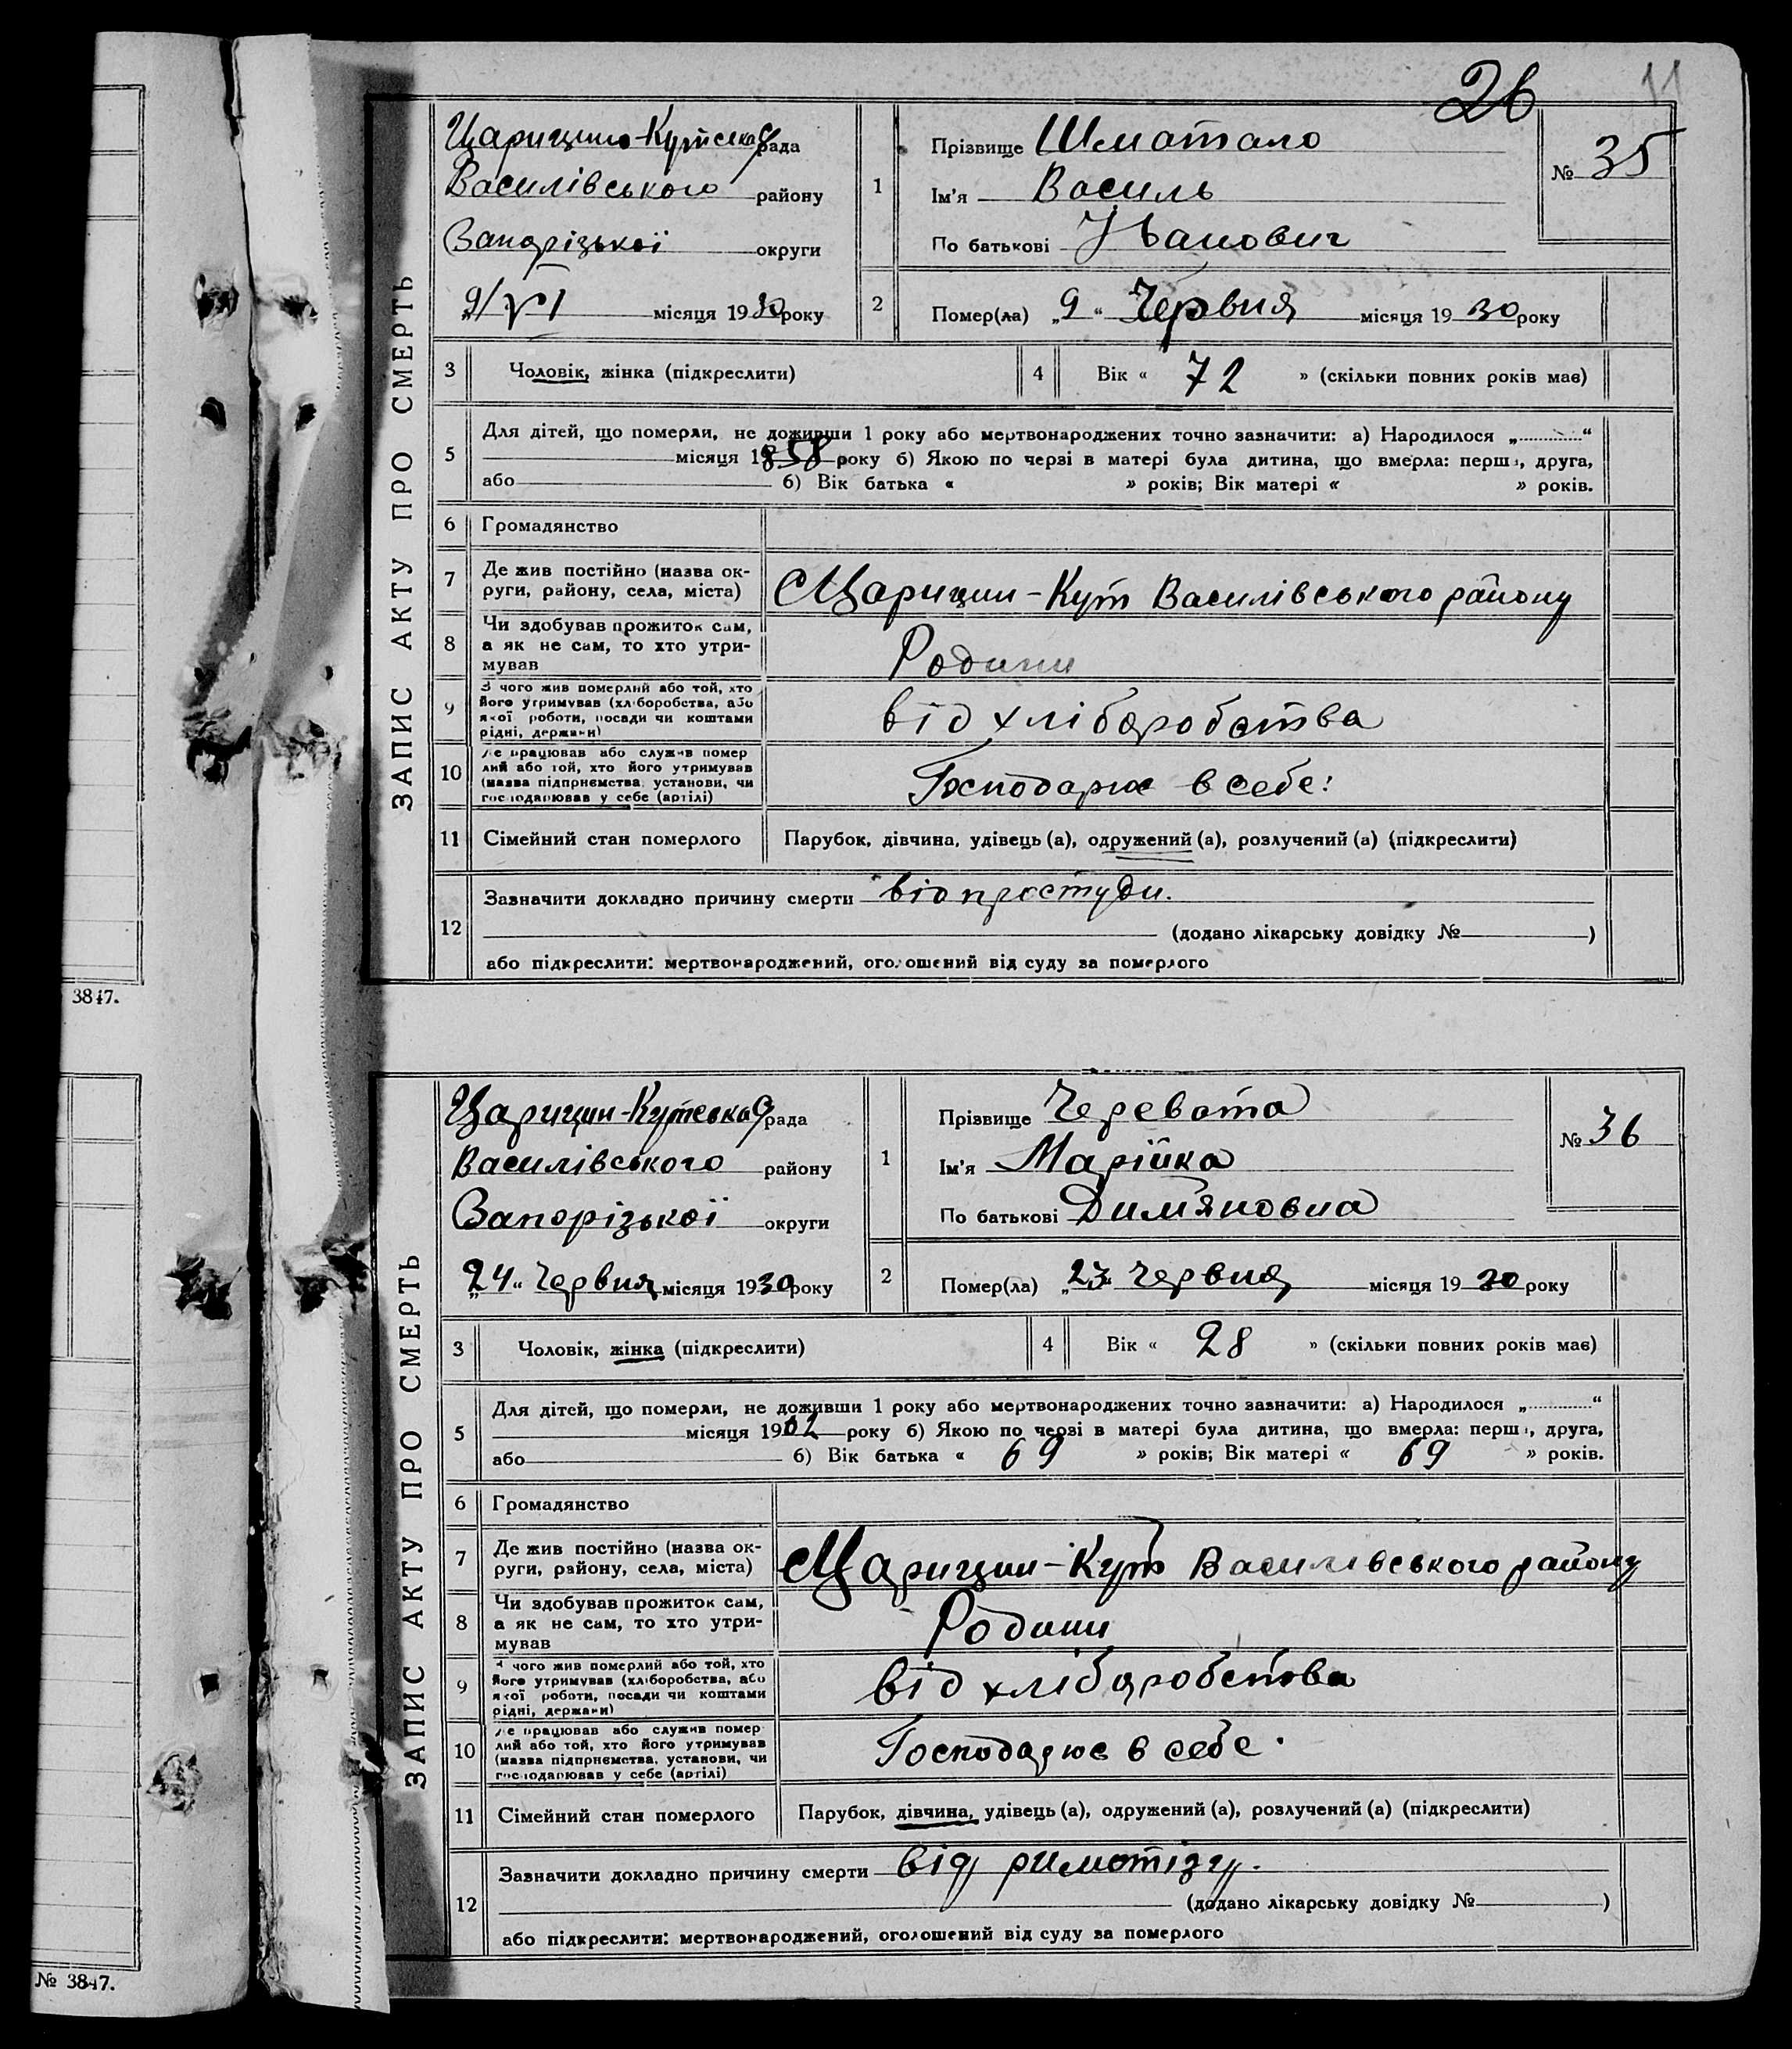 26
11
ЗАПИС АКТУ ПРО СМЕРТЬ
Царицино-Кутська рада
Василівського району
Запорізької округи
9/VI місяця 1930 року
1
Прізвище Шматало
Ім'я Василь
По батькові Іванович
№ 35
2
Помер(ла) „9“ Червня місяця 1930 року
3 Чоловік, жінка (підкреслити)
4 Вік « 72 » (скільки повних років має)
5 Для дітей, що померли, не доживши 1 року або мертвонароджених точно зазначити: а) Народилося „............“
місяця 1858 року б) Якою по черзі в матері була дитина, що вмерла: перша, друга,
або б) Вік батька « » років; Вік матері « » років.
6 Громадянство
7 Де жив постійно (назва ок-
руги, району, села, міста)
Царицин-Кут Василівського району
8 Чи здобував прожиток сам,
а як не сам, то хто утри-
мував
Родини
9 З чого жив померлий або той, хто
його утримував (хліборобства, або
якої роботи, посади чи коштами
рідні, держави)
від хліборобства
10 Де працював або служив помер
лий або той, хто його утримував
(назва підприємства, установи, чи
господарював у себе (артілі)
Господарює в себе:
11 Сімейний стан померлого Парубок, дівчина, удівець (а), одружений (а), розлучений (а) (підкреслити)
12 Зазначити докладно причину смерти від простуди.
(додано лікарську довідку № )
або підкреслити: мертвонароджений, оголошений від суду за померлого
3847.
ЗАПИС АКТУ ПРО СМЕРТЬ
Царицин-Кутська рада
Василівського району
Запорізької округи
„24“ Червня місяця 1930 року
1
Прізвище Черевата
Ім'я Марійка
По батькові Дим'яновна
№ 36
2
Помер(ла) „23“ червня місяця 1930 року
3 Чоловік, жінка (підкреслити)
4 Вік « 28 » (скільки повних років має)
5 Для дітей, що померли, не доживши 1 року або мертвонароджених точно зазначити: а) Народилося „............“
місяця 1902 року б) Якою по черзі в матері була дитина, що вмерла: перша, друга,
або б) Вік батька « 69 » років; Вік матері « 69 » років.
6 Громадянство
7 Де жив постійно (назва ок-
руги, району, села, міста)
Царицин-Кут Василівського району
8 Чи здобував прожиток сам,
а як не сам, то хто утри-
мував
Родини
9 З чого жив померлий або той, хто
його утримував (хліборобства, або
якої роботи, посади чи коштами
рідні, держави)
від хліборобства
10 Де працював або служив помер
лий або той, хто його утримував
(назва підприємства, установи, чи
господарював у себе (артілі)
Господарює в себе.
11 Сімейний стан померлого Парубок, дівчина, удівець (а), одружений (а), розлучений (а) (підкреслити)
12 Зазначити докладно причину смерти від риматізу.
(додано лікарську довідку № )
або підкреслити: мертвонароджений, оголошений від суду за померлого
№ 3847.